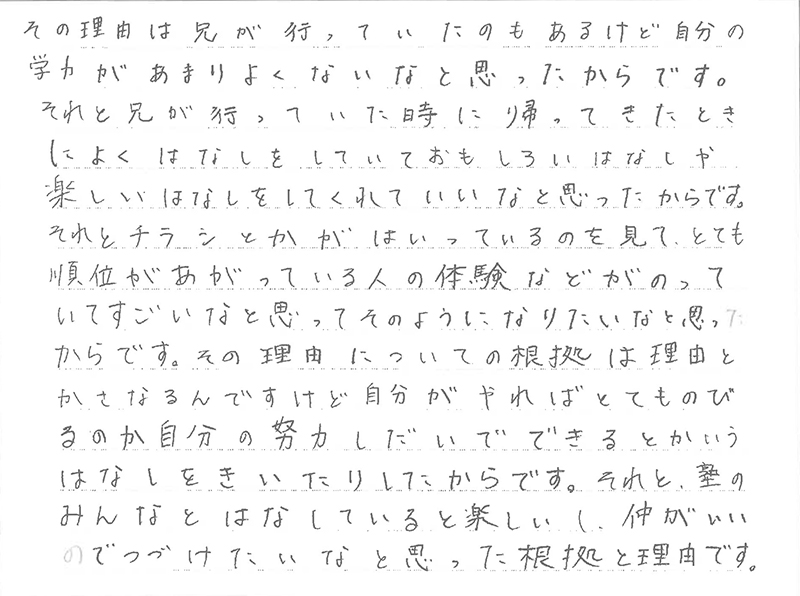 その理由は兄が行っていたのもあるけど自分の
学力があまりよくないなと思ったからです。
それと兄が行っていた時に帰ってきたとき
によくはなしをしていておもしろいはなしや
楽しいはなしをしてくれていいなと思ったからです。
それとチラシとかがはいっているのを見て、とても
順位があがっている人の体験などがのって
いてすごいなと思ってそのようになりたいなと思った
からです。その理由についての根拠は理由と
かさなるんですけど自分がやればとてものび
るのか自分の努力しだいでできるとかいう
はなしをきいたりしたからです。それと、塾の
みんなとはなしていると楽しいし、仲がいい
のでつづけたいなと思った根拠と理由です。